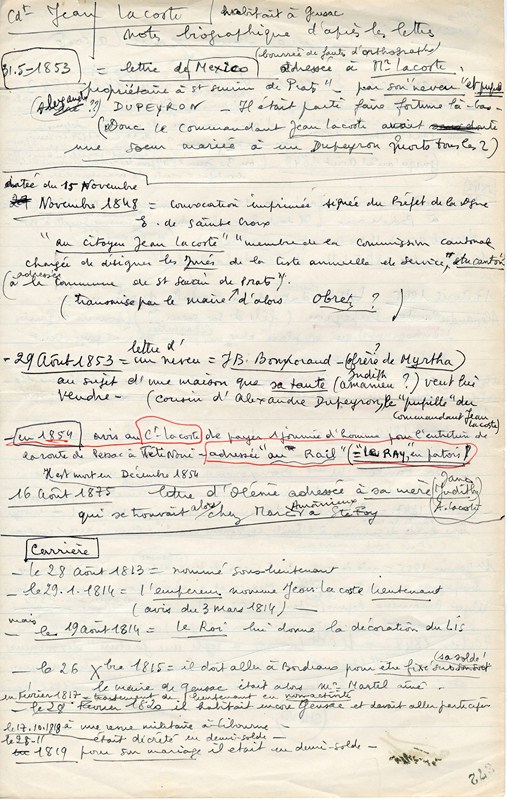 Cdt Jean Lacoste / habitait à Gensac
notes biographiques d'après les lettres
(bourrée de fautes d'orthographe)
31.5-1853 = lettre de Mexico adressée à Mr Lacoste
propriétaire à St Seurin de Prats" - par son "neveu" et pupille
(Alexandre ??) DUPEYRON - Il était parti faire fortune là-bas -
(Donc le Commandant Jean Lacoste avait
une sœur mariée à un Dupeyron (morts tous les 2)
datée du 15 Novembre
Novembre 1848 = convocation imprimée signée du Préfet de la
E. de Sainte Croix
"au citoyen Jean Lacoste" "membre de la commission cantonale
chargée de désigner les Jurés de la liste annuelle de service,
(adressée à la Commune de St Seurin de Prats".
(transmise par le maire d'alors Obrez ?)
lettre d'
- 29 Août 1853 = un neveu = J.B. Bonhoraud - (frère ? de Myrtha)
au sujet d'une maison que sa tante (Judith Amanieu ?) veut lui
vendre - (cousin d'Alexandre Dupeyron, le "pupille" du
Commandant Jean Lacoste)
- en 1854 avis au Ct Lacoste de payer 1 journée d'homme pour l'entretien de
la route de Pessac à - adressée "au Rail" (= "le RAY" en patois ?
Il est mort en Décembre 1854
16 Août 1875 lettre d' adressée à sa mère (Jane Judith A. Lacoste)
qui se trouvait alors chez à Ste Foy
Carrière
- le 28 Août 1813 = nommé sous-lieutenant
- le 29.1.1814 = l'empereur nomme Jean Lacoste lieutenant
(avis du 3 Mars 1814) -
mais
- le 19 août 1814 = Le Roi lui donne la décoration du Lis
le 26 Xbre 1815 = il doit aller à Bordeaux pour être fixé (sa solde)
le maire de Gensac était alors Mr Martel aîné -
en Février 1817 - traitement de lieutenant en non activité
- le 28 Février 1820 il habitait encore Gensac et devait aller participer
le 17.10.1818 à une revue militaire à Libourne -
le 28-11 était décrété en demi-solde -
1819 pour son mariage il était en demi-solde -
372